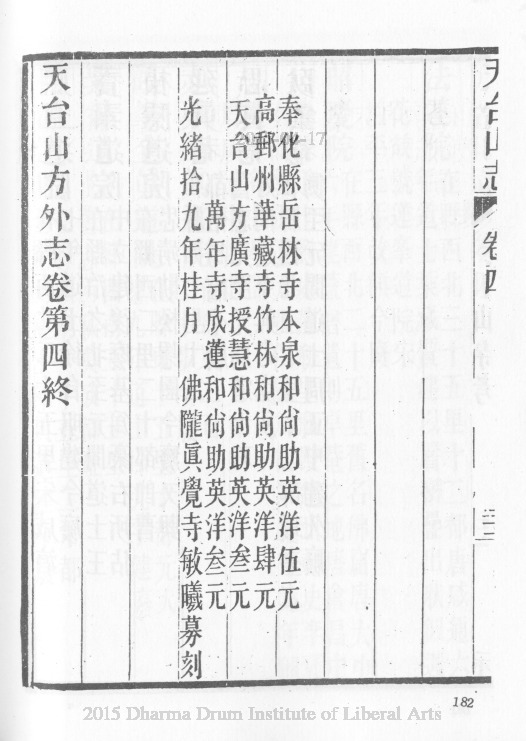 天台山志 卷四 三二
奉化縣岳林寺本泉和尙助英洋伍元
高郵州華藏寺竹林和尙助英洋肆元
天台山方廣寺授慧和尙助英洋叁元
萬年寺成蓮和尙助英洋叁元
光緒拾九年桂月 佛隴眞覺寺敏曦募刻
天台山方外志卷第四終
182
2015 Dharma Drum Institute of Liberal Arts